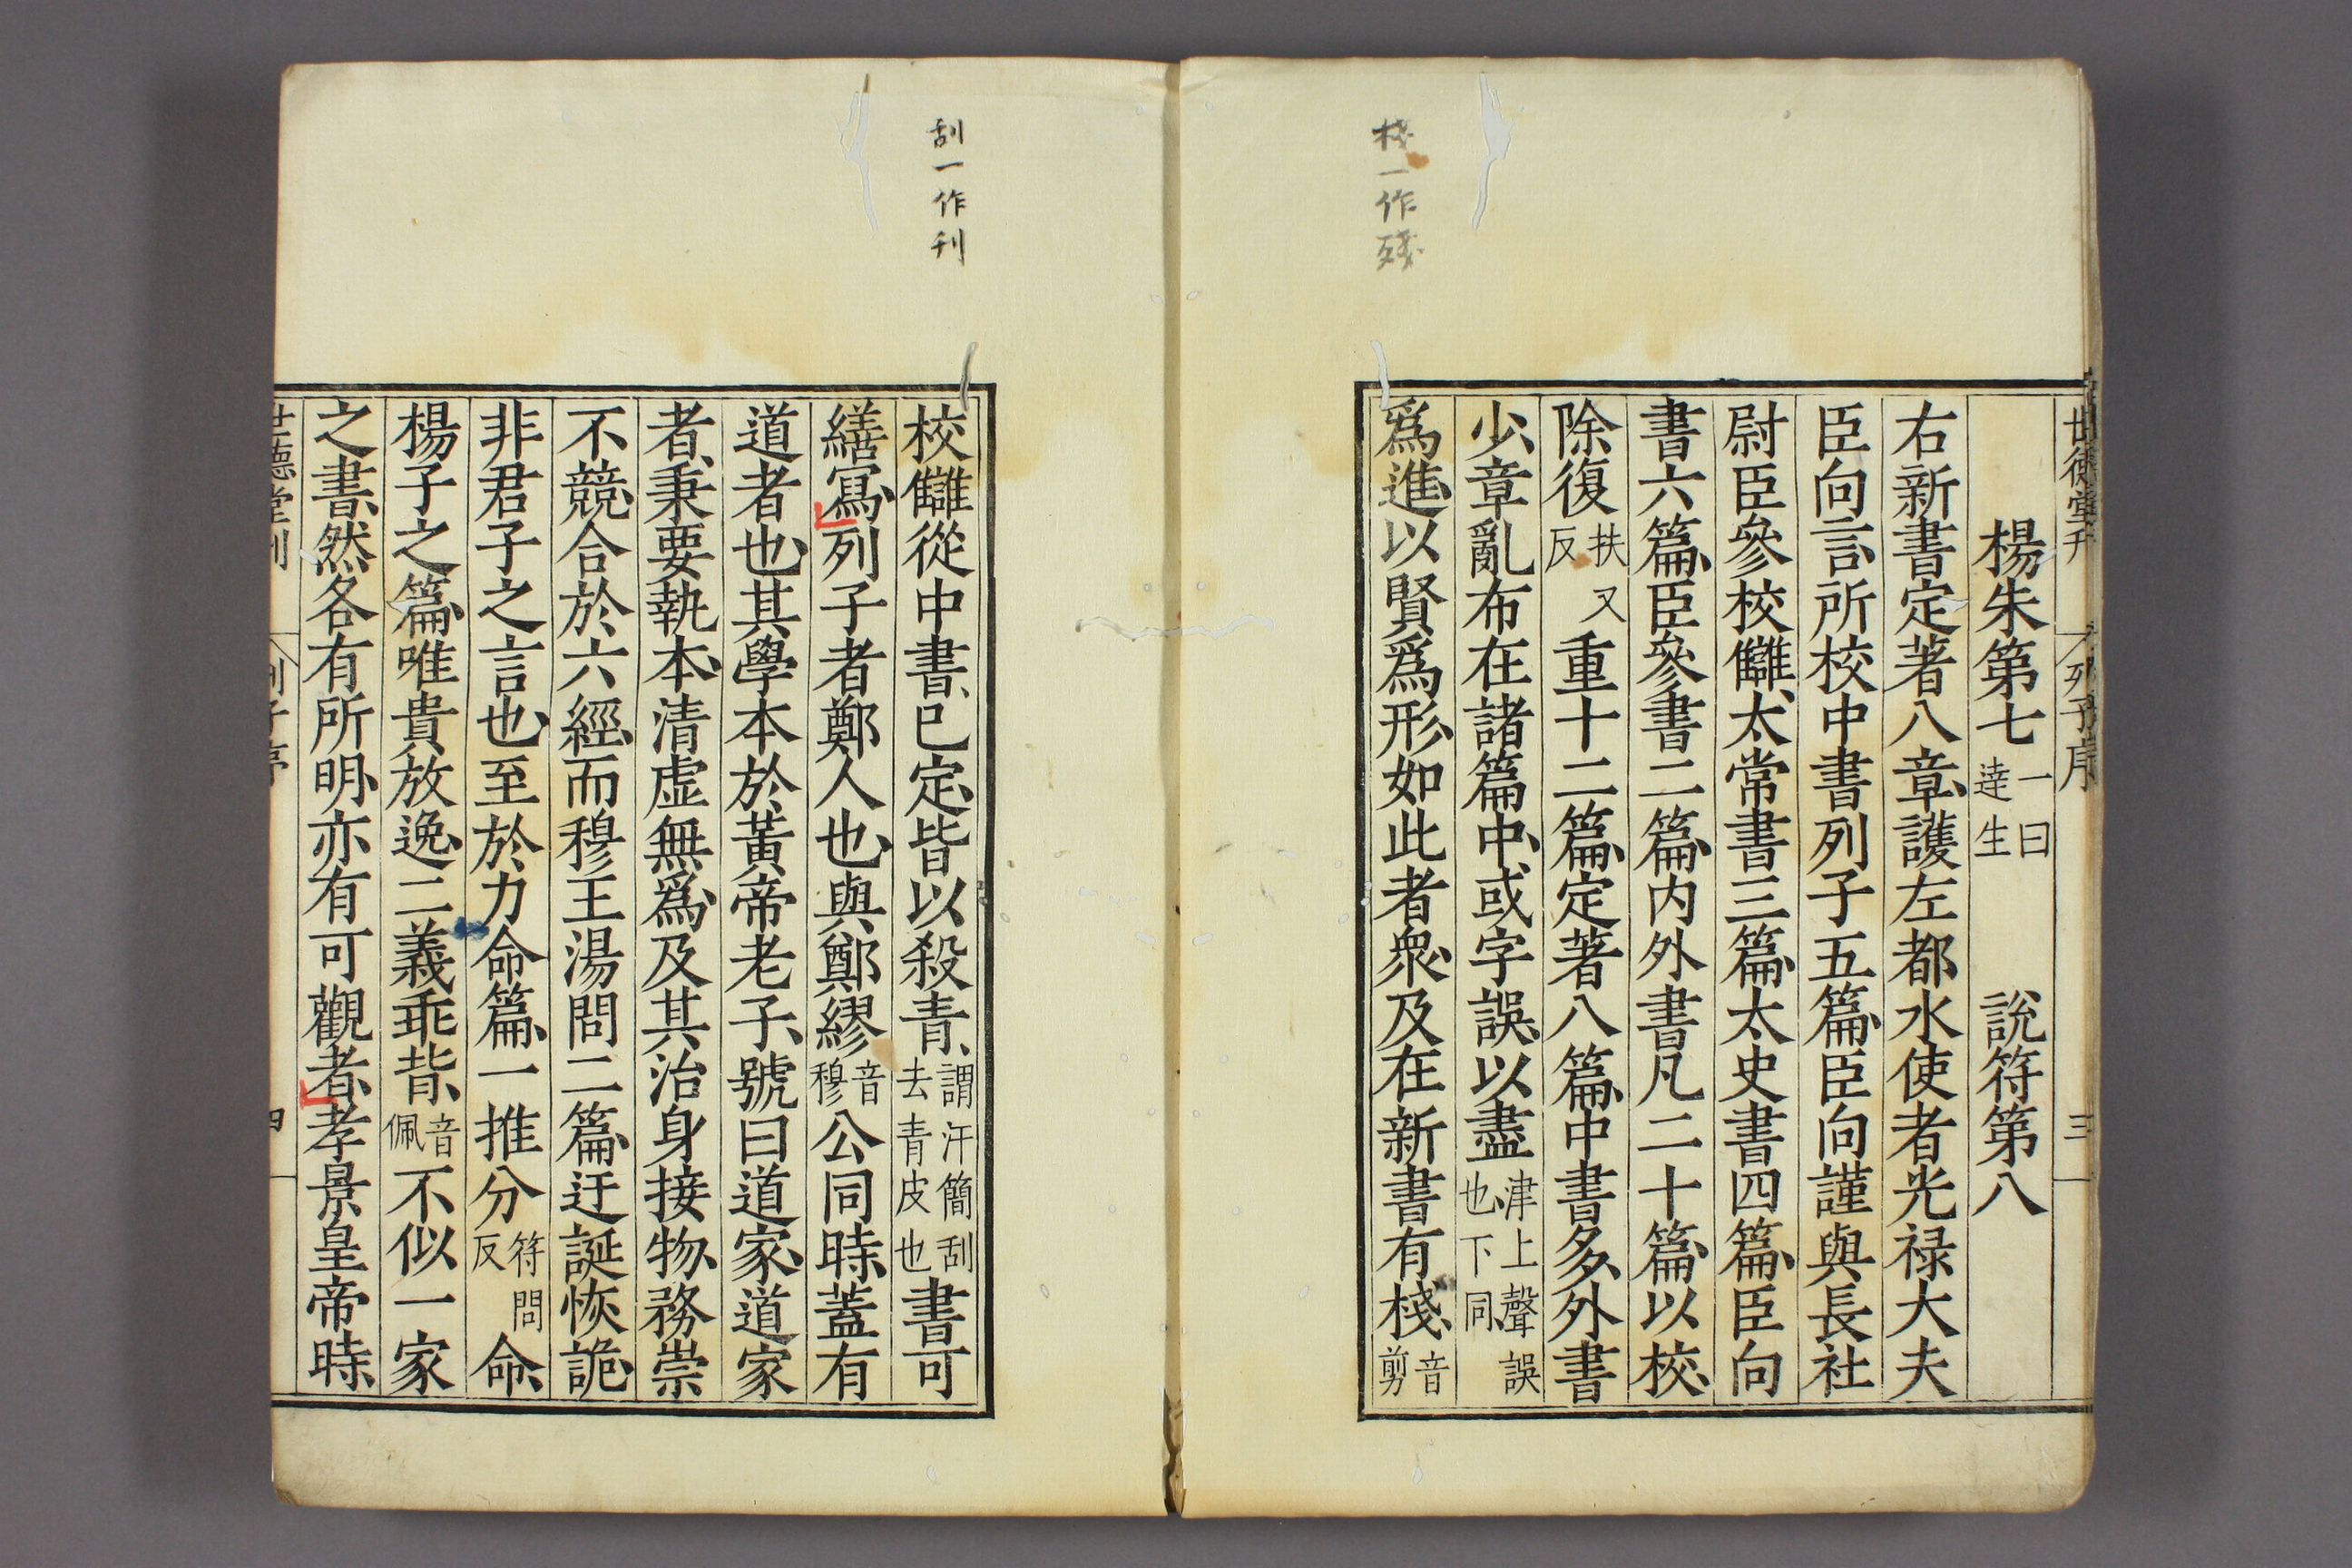 世德堂刊 列子序 三
楊朱第七 一曰達生 說符第八
右新書定著八章護左都水使者光禄大夫
臣向言所校中書列子五篇臣向謹與長社
尉臣參校讎太常書三篇太史書四篇臣向
書六篇臣參書二篇内外書凡二十篇以校
除復 扶又反 重十二篇定著八篇中書多外書
少章亂布在諸篇中或字誤以盡 津上聲誤也下同
爲進以賢爲形如此者衆及在新書有棧 音剪
棧一作殘
刮一作刊
校讎從中書已定皆以殺青 謂汗簡刮去青皮也 書可
繕寫列子者鄭人也與鄭繆 音穆 公同時蓋有
道者也其學本於黃帝老子號曰道家道家
者秉要執本清虛無爲及其治身接物務崇
不競合於六經而穆王湯問二篇迂誕恢詭
非君子之言也至於力命篇一推分 符問反 命
楊子之篇唯貴放逸二義乖背 音佩 不似一家
之書然各有所明亦有可觀者孝景皇帝時
世德堂刊 列子序 四